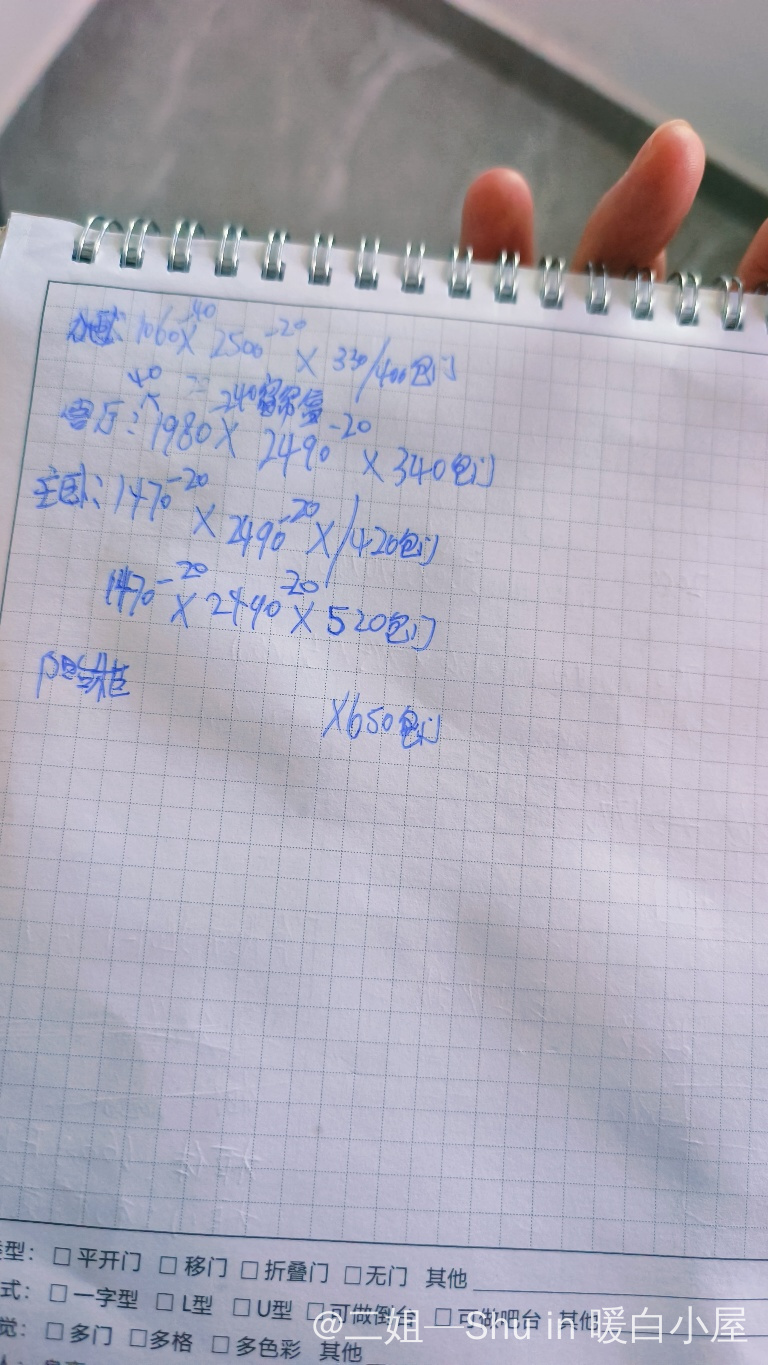 1060-40 X 2500-20 X 330/400包门
40 -240窗帘盒
客厅：1980 X 2490-20 X 340包门
主卧：1470-20 X 2490-20 X /420包门
1470-20 X 2490-20 X 520包门
X650包门
型： □ 平开门 □ 移门 □ 折叠门 □ 无门 其他
式： □ 一字型 □ L型 □ U型 □ 可做倒台 □ 可做吧台 其他
觉： □ 多门 □ 多格 □ 多色彩 其他
@二姐—Shu in 暖白小屋